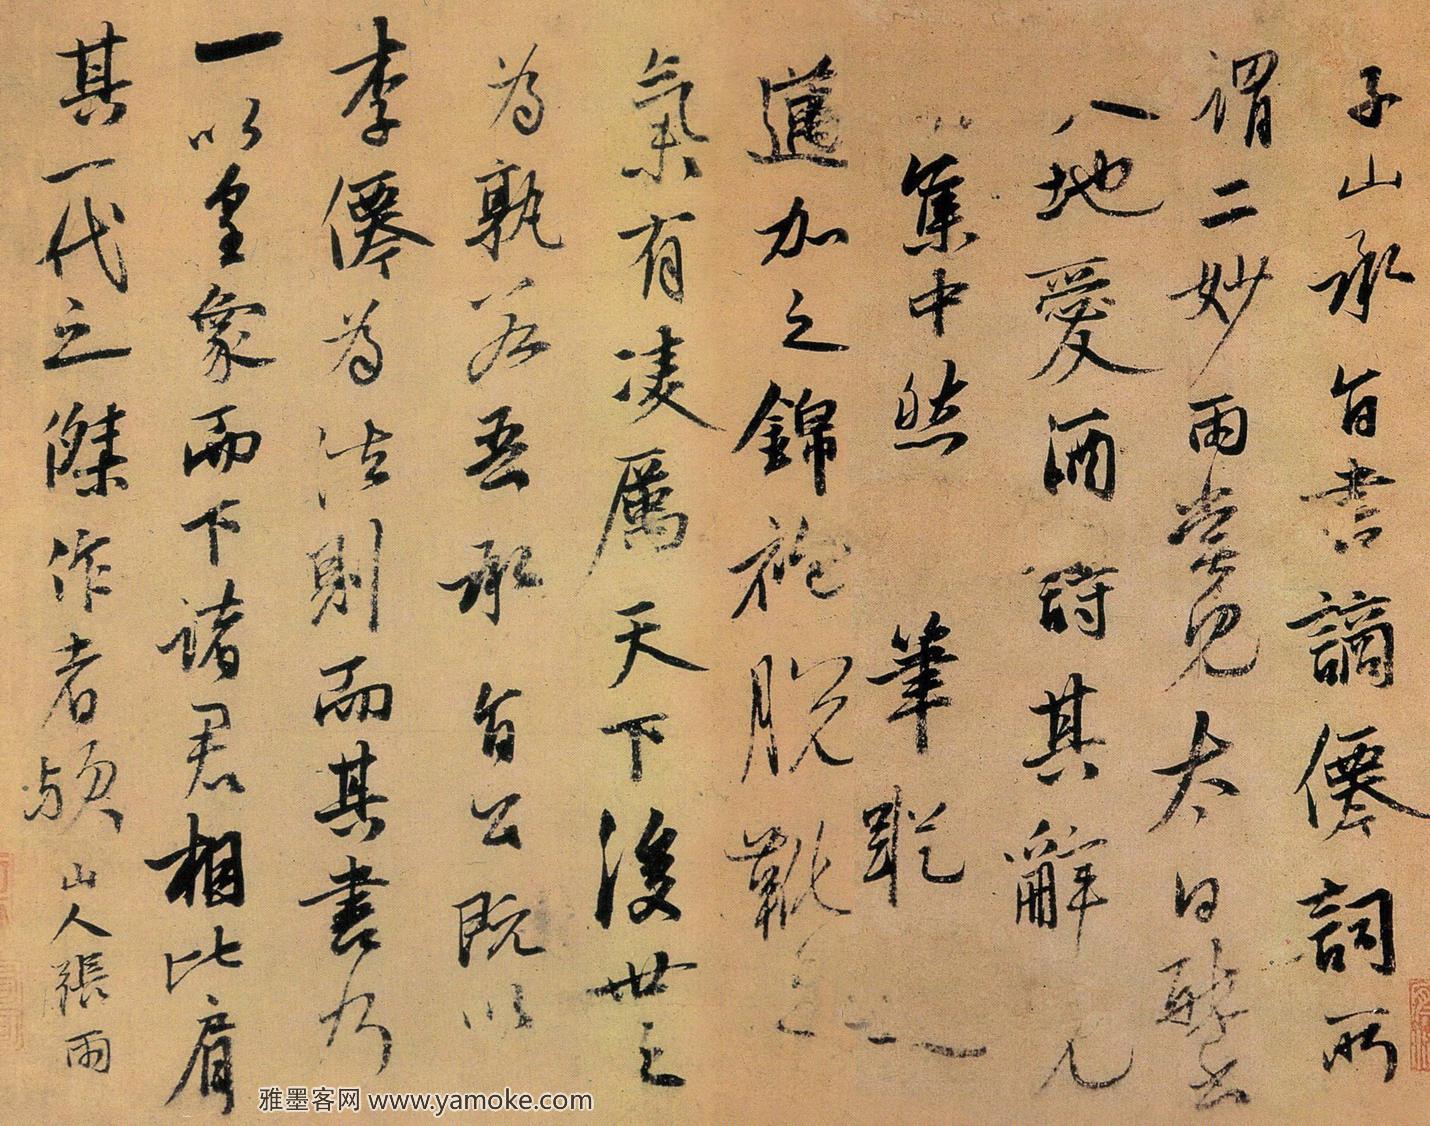 子山承旨書謫僊詞所
謂二妙雨嘗見太白醉書
八地愛酒詩其辭見
集中然筆蹤
邁加之錦袍脫靴之
氣有凌厲天下後世之
為孰若吾承旨公既以
李僊為法則而其書乃
一以皇象而下諸君相比肩
其一代之傑作者歟山人張雨
雅墨客网 www.yamoke.com